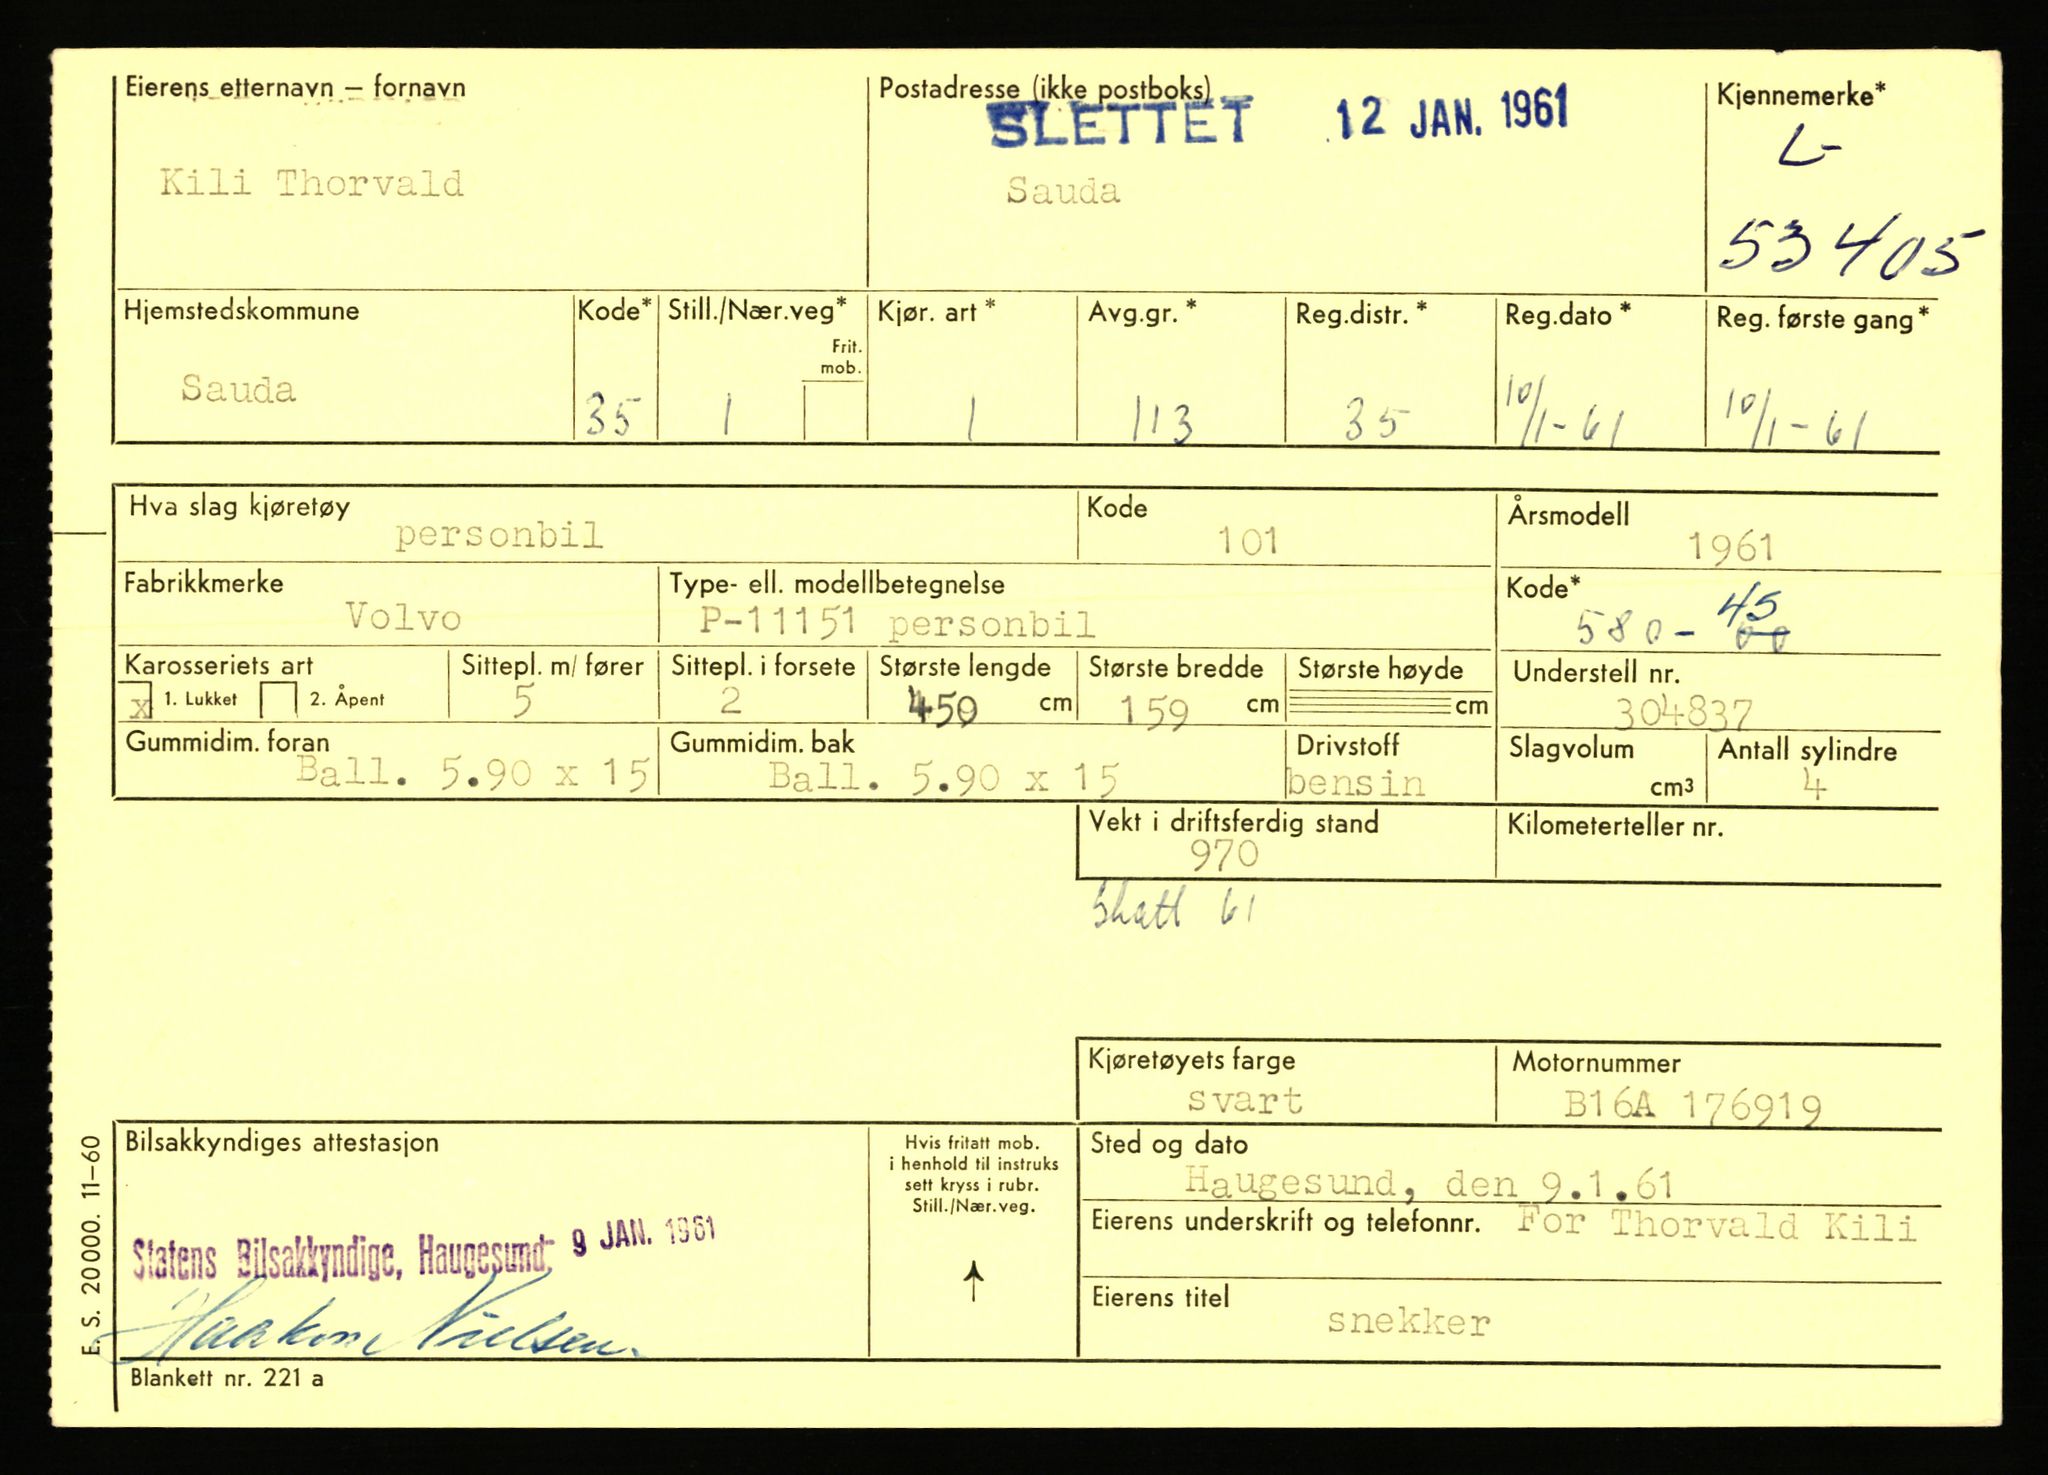 Eierens etternavn – fornavn
Kili Thorvald
Postadresse (ikke postboks)
SLETTET 12 JAN. 1961
Sauda
Kjennemerke*
L-
53405
Hjemstedskommune
Sauda
Kode*
35
Still./Nær.veg*
1
Frit.
mob.
Kjør. art *
1
Avg.gr. *
113
Reg.distr. *
35
Reg.dato *
10/1-61
Reg. første gang*
10/1-61
Hva slag kjøretøy
personbil
Kode
101
Årsmodell
1961
Fabrikkmerke
Volvo
Type- ell. modellbetegnelse
P-11151 personbil
Kode*
45
580-00
Karosseriets art
x 1. Lukket 2. Åpent
Sittepl. m/ fører
5
Sittepl. i forsete
2
Største lengde
450 cm
Største bredde
159 cm
Største høyde
cm
Understell nr.
304837
Gummidim. foran
Ball. 5.90 x 15
Gummidim. bak
Ball. 5.90 x 15
Drivstoff
bensin
Slagvolum
cm³
Antall sylindre
4
Vekt i driftsferdig stand
970
Kilometerteller nr.
Skatt 61
Kjøretøyets farge
svart
Motornummer
B16A 176919
Bilsakkyndiges attestasjon
Statens Bilsakkyndige, Haugesund 9 JAN. 1961
Haakon Nielsen
Hvis fritatt mob.
i henhold til instruks
sett kryss i rubr.
Still./Nær.veg.
Sted og dato
Haugesund, den 9.1.61
Eierens underskrift og telefonnr. For Thorvald Kili
Eierens titel
snekker
E. S. 20000. 11–60
Blankett nr. 221 a